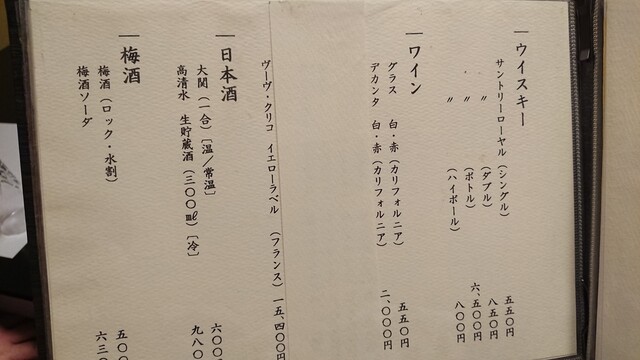 ウイスキー
サントリーローヤル(シングル) 五五〇円
〃 (ダブル) 八五〇円
〃 (ボトル) 六、五〇〇円
〃 (ハイボール) 八〇〇円
ワイン
グラス 白・赤(カリフォルニア) 五五〇円
デカンタ 白・赤(カリフォルニア) 二、〇〇〇円
ヴーヴ・クリコ イエローラベル (フランス) 一五、四〇〇円
日本酒
大関(一合)[温/常温] 六〇〇
高清水 生貯蔵酒(三〇〇㎖)[冷] 九八〇
梅酒
梅酒(ロック・水割) 五〇
梅酒ソーダ 六三〇